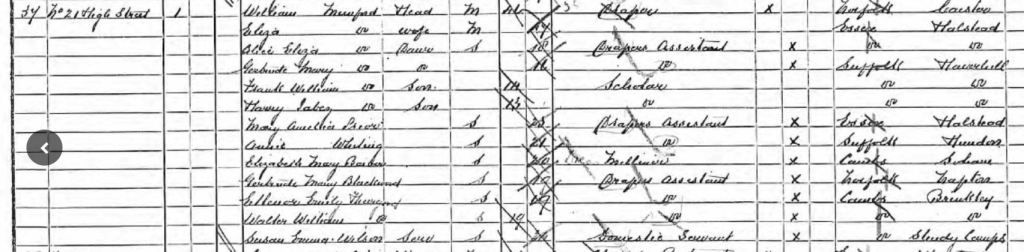 37 No 21 High Street 1 William Mumford Head M Draper x Norfolk Caistor
Eliza do Wife M Essex Halstead
Alice Eliza do Daur S 18 Drapers Assistant x do do
Gertrude Mary do do 16 do x Suffolk Haverhill
Frank William do Son 14 Scholar do do
Harry Jabez do Son 13 do do do
Mary Amelia S 23 Drapers Assistant x Essex Halstead
Annie S 21 do x Suffolk Hundon
Elizabeth Mary S 20 Milliner x Cambs Soham
Gertrude Mary Blackwood S 19 Drapers Assistant x Norfolk Trapton
Ellenor Emily S 19 do x Cambs Brinkley
Walter William do S 19 do x do do
Susan Emma Wilson Serv S Domestic Servant x do Shudy Camps